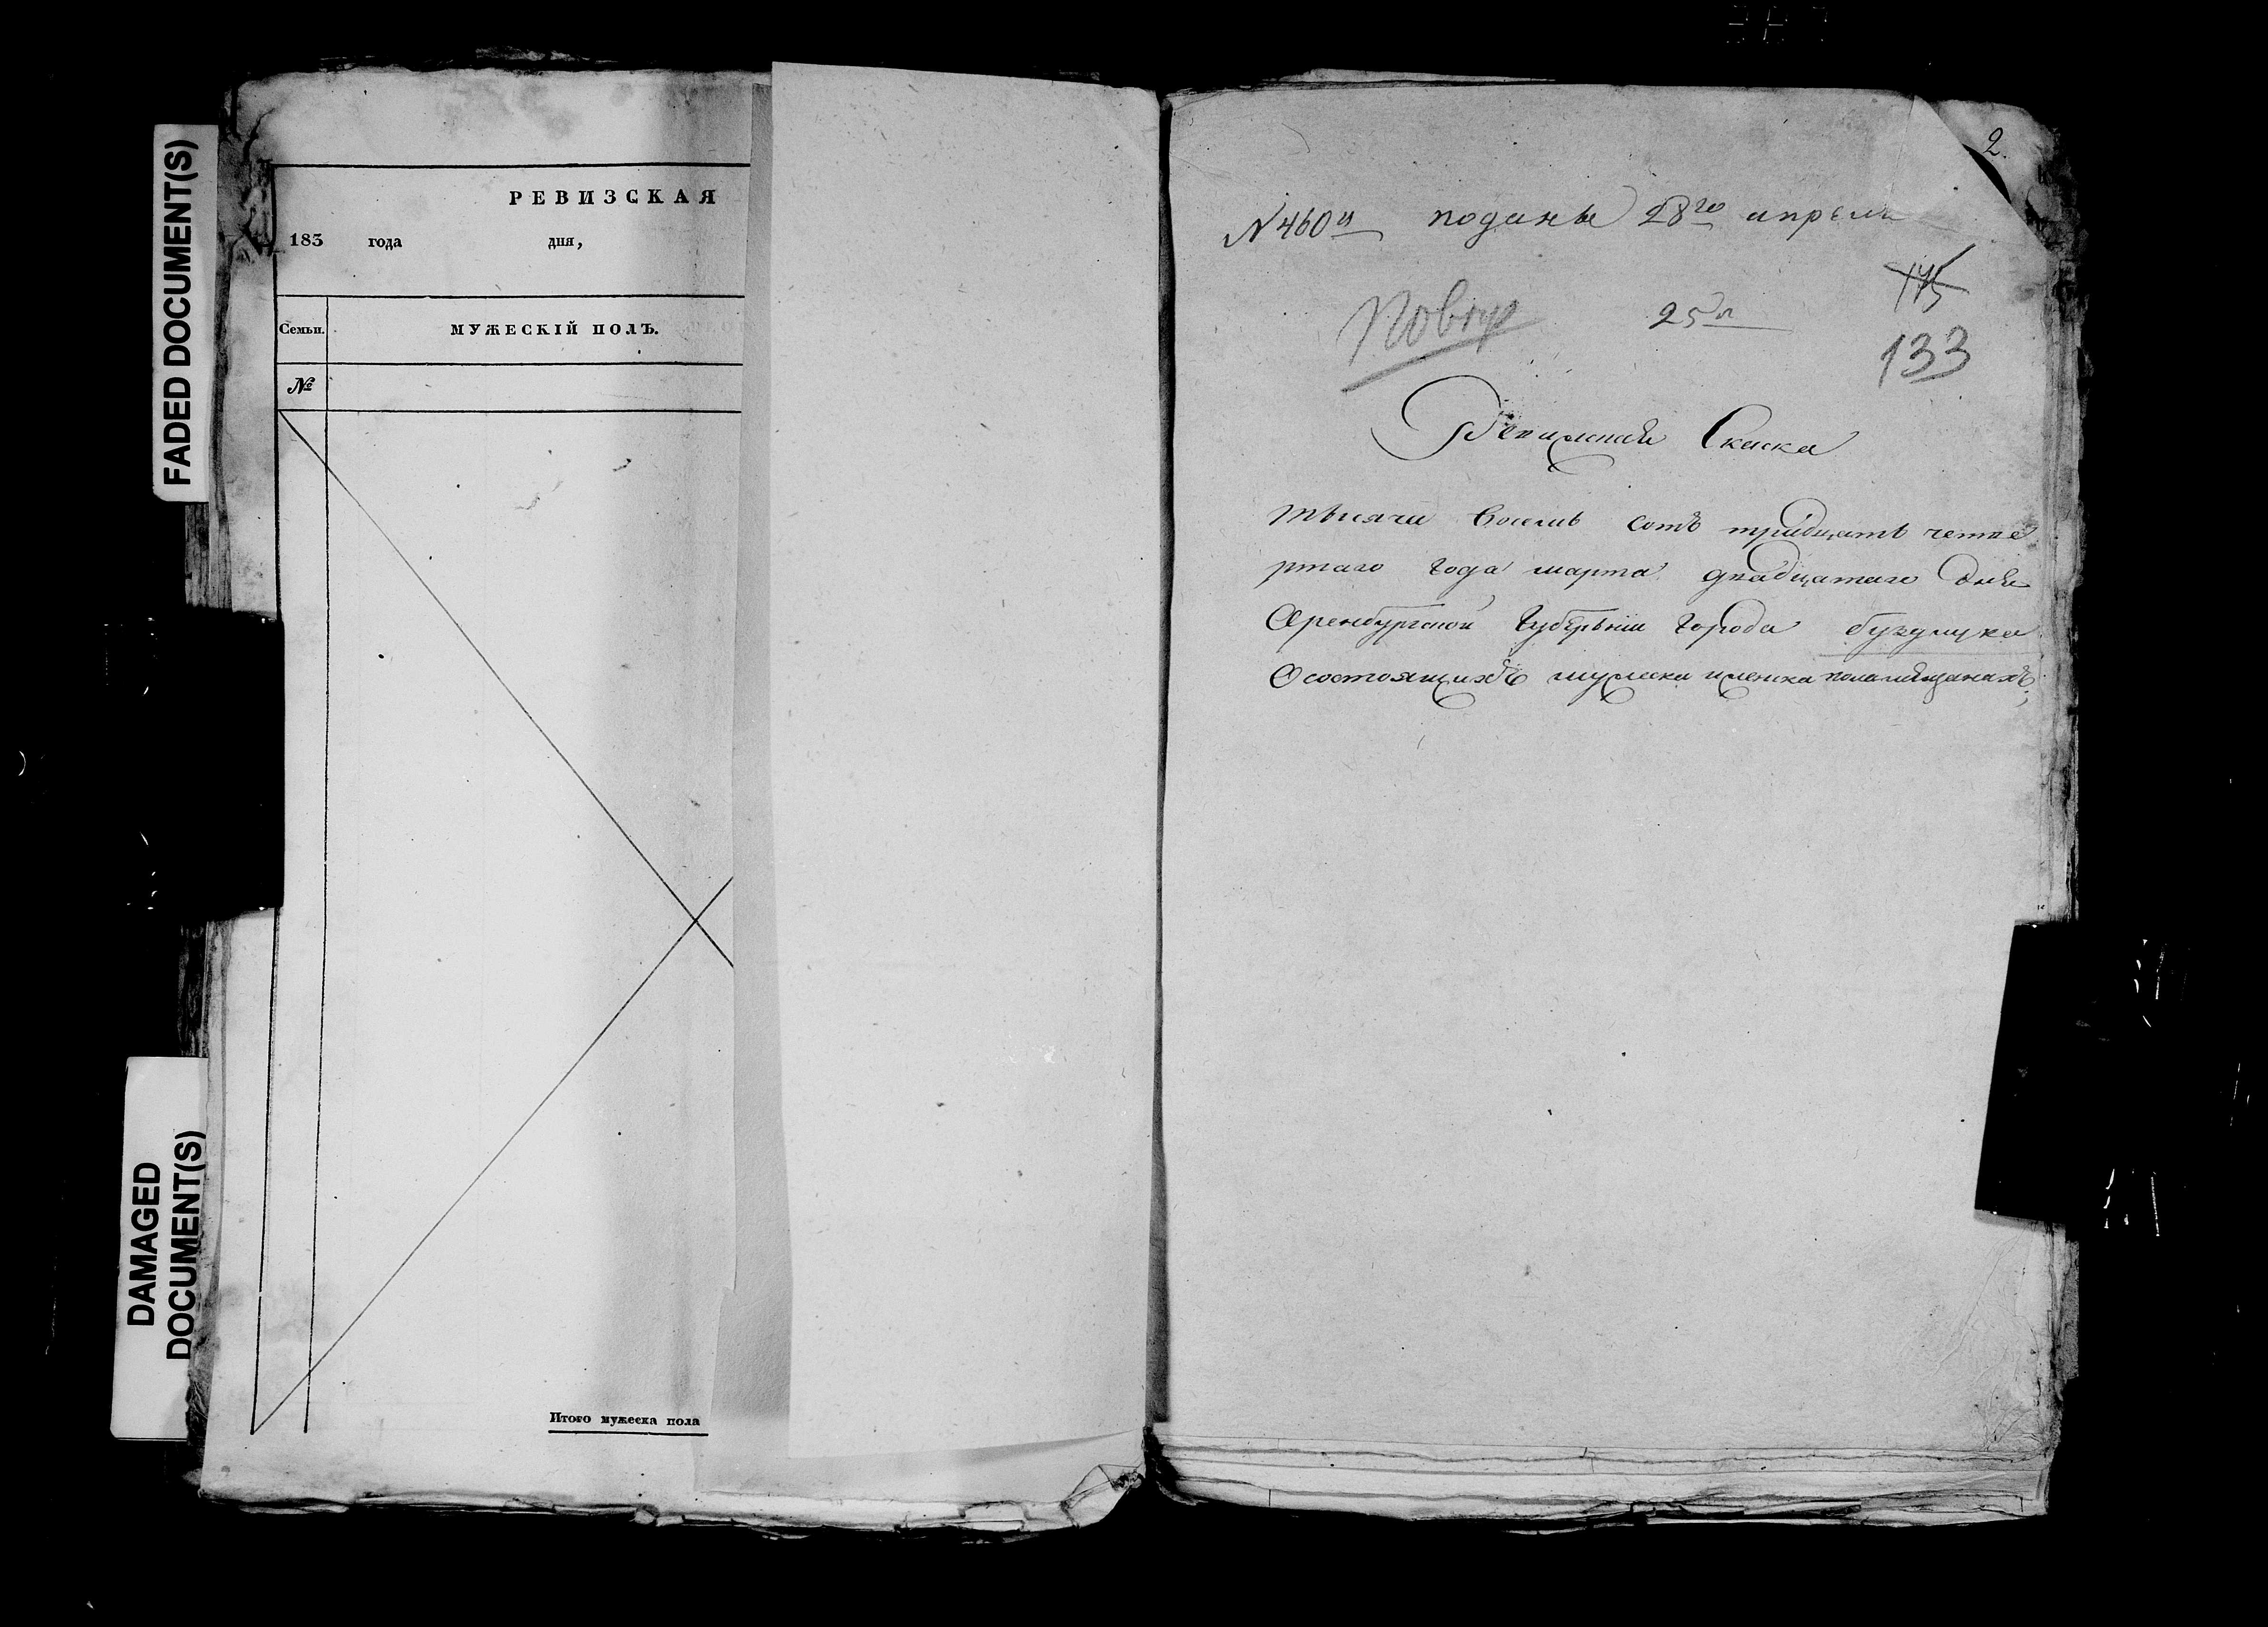 FADED DOCUMENT(S)
DAMAGED
DOCUMENT(S)
РЕВИЗСКАЯ
183 года дня,
Семьи. МУЖЕСКІЙ ПОЛЪ.
№
Итого мужеска пола
2.
№ 460й поданы 28го апреля
25й
145
133
Ревизская Скаска
тысячи восемь сотъ тридцать четве
ртаго года марта двадцатаго дня
Оренбургской Губернии города бузулука
О состоящихъ мужеска и женска пола мещанахъ,